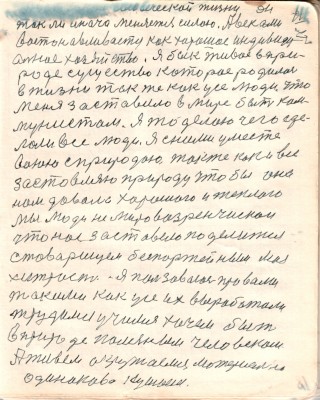 ческой жизни
так ли иначе менять силою. А векам
восстанавливасту как хорошое индивиду
альное хозяйство. Я бык живое в при-
роде существо которое родился
в жизни так же как и все люди. Это
меня заставило в мире быть ком-
мунистам. Я то делаю чего сде-
лали все люди. Я с ними уместе
воюю с природаю также как и все
заставляю природу чтобы она
нам довала хорошого и теплого
мы люди не
что нас заставило поделится
с товарищем беспартейным
хитрасти. Я пользовался правами
такими как и все их выработали
трудимся учимся хочем быть
в природе полезным человеком
А живем окружаемся материально
одинаково кушаем.